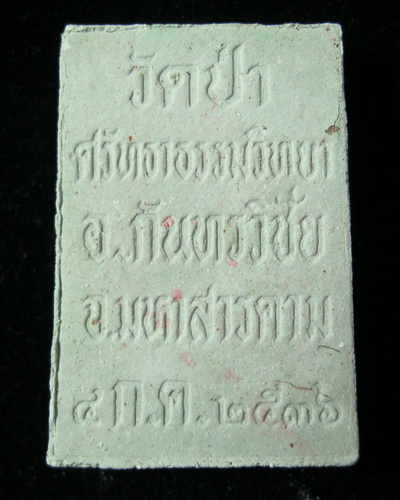 วัดป่า
ศรัทธาธรรมวิทยา
อ.กันทรวิชัย
จ.มหาสารคาม
๔ ก.ค. ๒๕๓๖